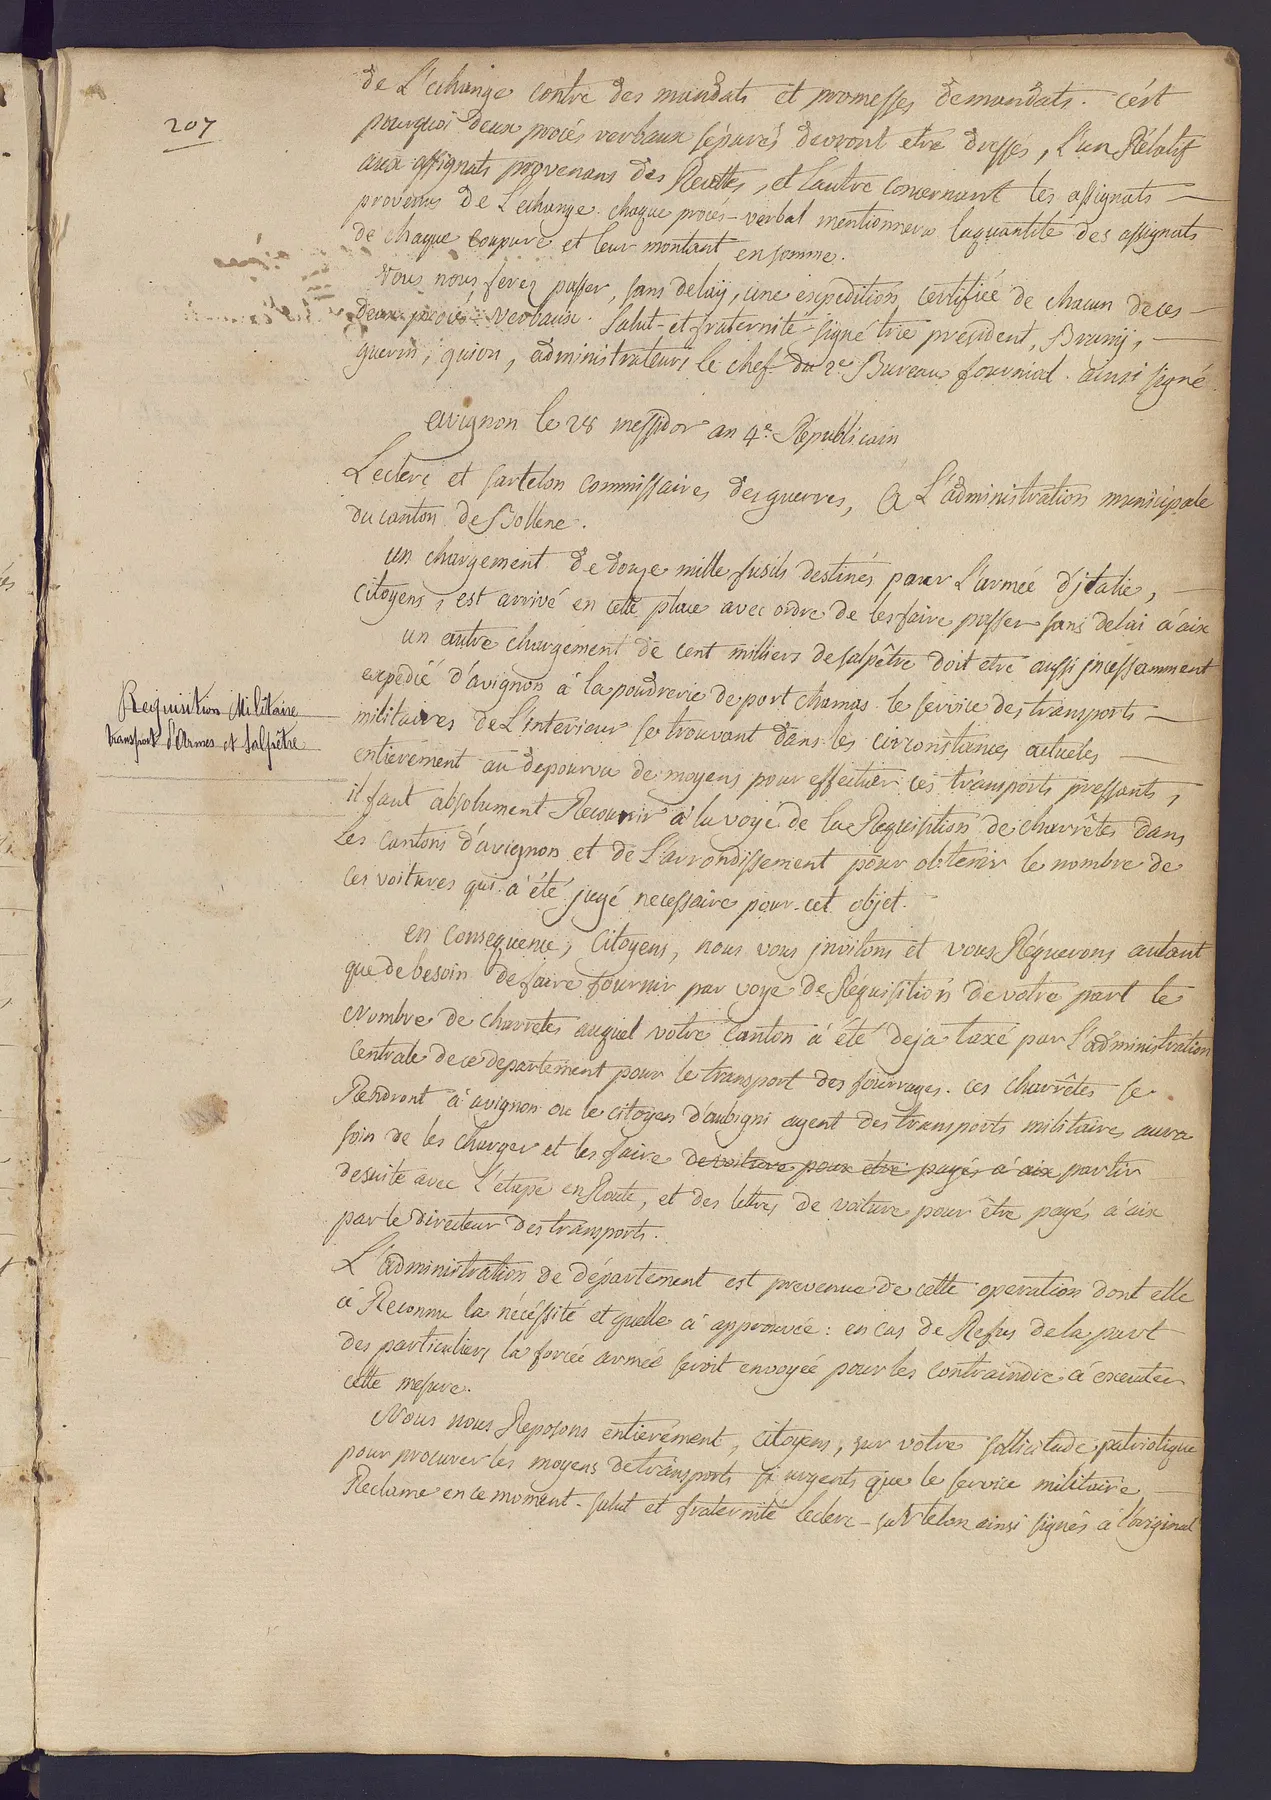 207
de L'echange contre des mandats et promesses demandats. c'ést
pourquoi deux procés verbaux séparés devront etre dressés, L'un Rélatif
aux assignats provenans des Recettes, et l'autre concernant les assignats
provenus de L'echange. chaque procés-verbal mentionnera laquantité des assignats
de chaque coupure et leur montant en somme.
Vous nous ferez passer, sans delaij, une expedition certifiée de chacun de ces
deux procés verbaux. Salut et fraternité signé tric président, Brunij,
guerin, quion, administrateurs le chef du 2e. Bureau fournial. ainsi signé
avignon le 28 messidor an 4e. Républicain
Leclerc et sartelon commissaires des guerres, A L'administration municipale
du canton de Bollene.
un chargement de douze mille fusils destinés pour L'armée D'jtalie,
Citoyens, est arrivé en cette place avec ordre de les faire passer sans delai á aix
un autre chargement de cent milliers de salpêtre doit etre aussi jncessamment
expedié d'avignon á la poudrerie de port chamas. le service des transports
militaires de L'interieur se trouvant dans les circonstances actueles
entièrement au depourvu de moyens pour effectuer ces transports pressants,
il faut absolument Recourir á la voye de la Requisition de charrêtes dans
Les cantons d'avignon et de L'arrondissement pour obtenir le nombre de
ces voitures qui á été jugé necessaire pour cet objet.
Requisition Militaire
transport d'Armes et Salpêtre
en consequence, Citoyens, nous vous jnvitons et vous Réquerons autant
que de besoin de faire fournir par voye de Réquisition de votre part le
Nombre de charretes auquel votre Canton á été deja taxé par l'administration
Centrale de ce departement pour le transport des fourrages. ces charrêtes se
Rendront á avignon ou le citoyen d'aubigni agent des transports militaires aura
soin de les charger et les faire de voiture pour etre payés á aix partir
desuite avec L'etape en Route, et des lettres de voiture pour être payés á aix
par le directeur des transports.
L'administration de département est prevenue de cette operation dont elle
á Reconnu la nécéssité et quelle á approuvée: en cas de Refus de la part
des particuliers la forcée armée seroit envoyée pour les contraindre á executer
cette mesure.
Nous nous Reposons entièrement, citoyens, sur votre sollicitude patriotique
pour procurer les moyens de transports si urgents que le service militaire
Reclame en ce moment. salut et fraternité leclerc - sartelon ainsi signés á l'original